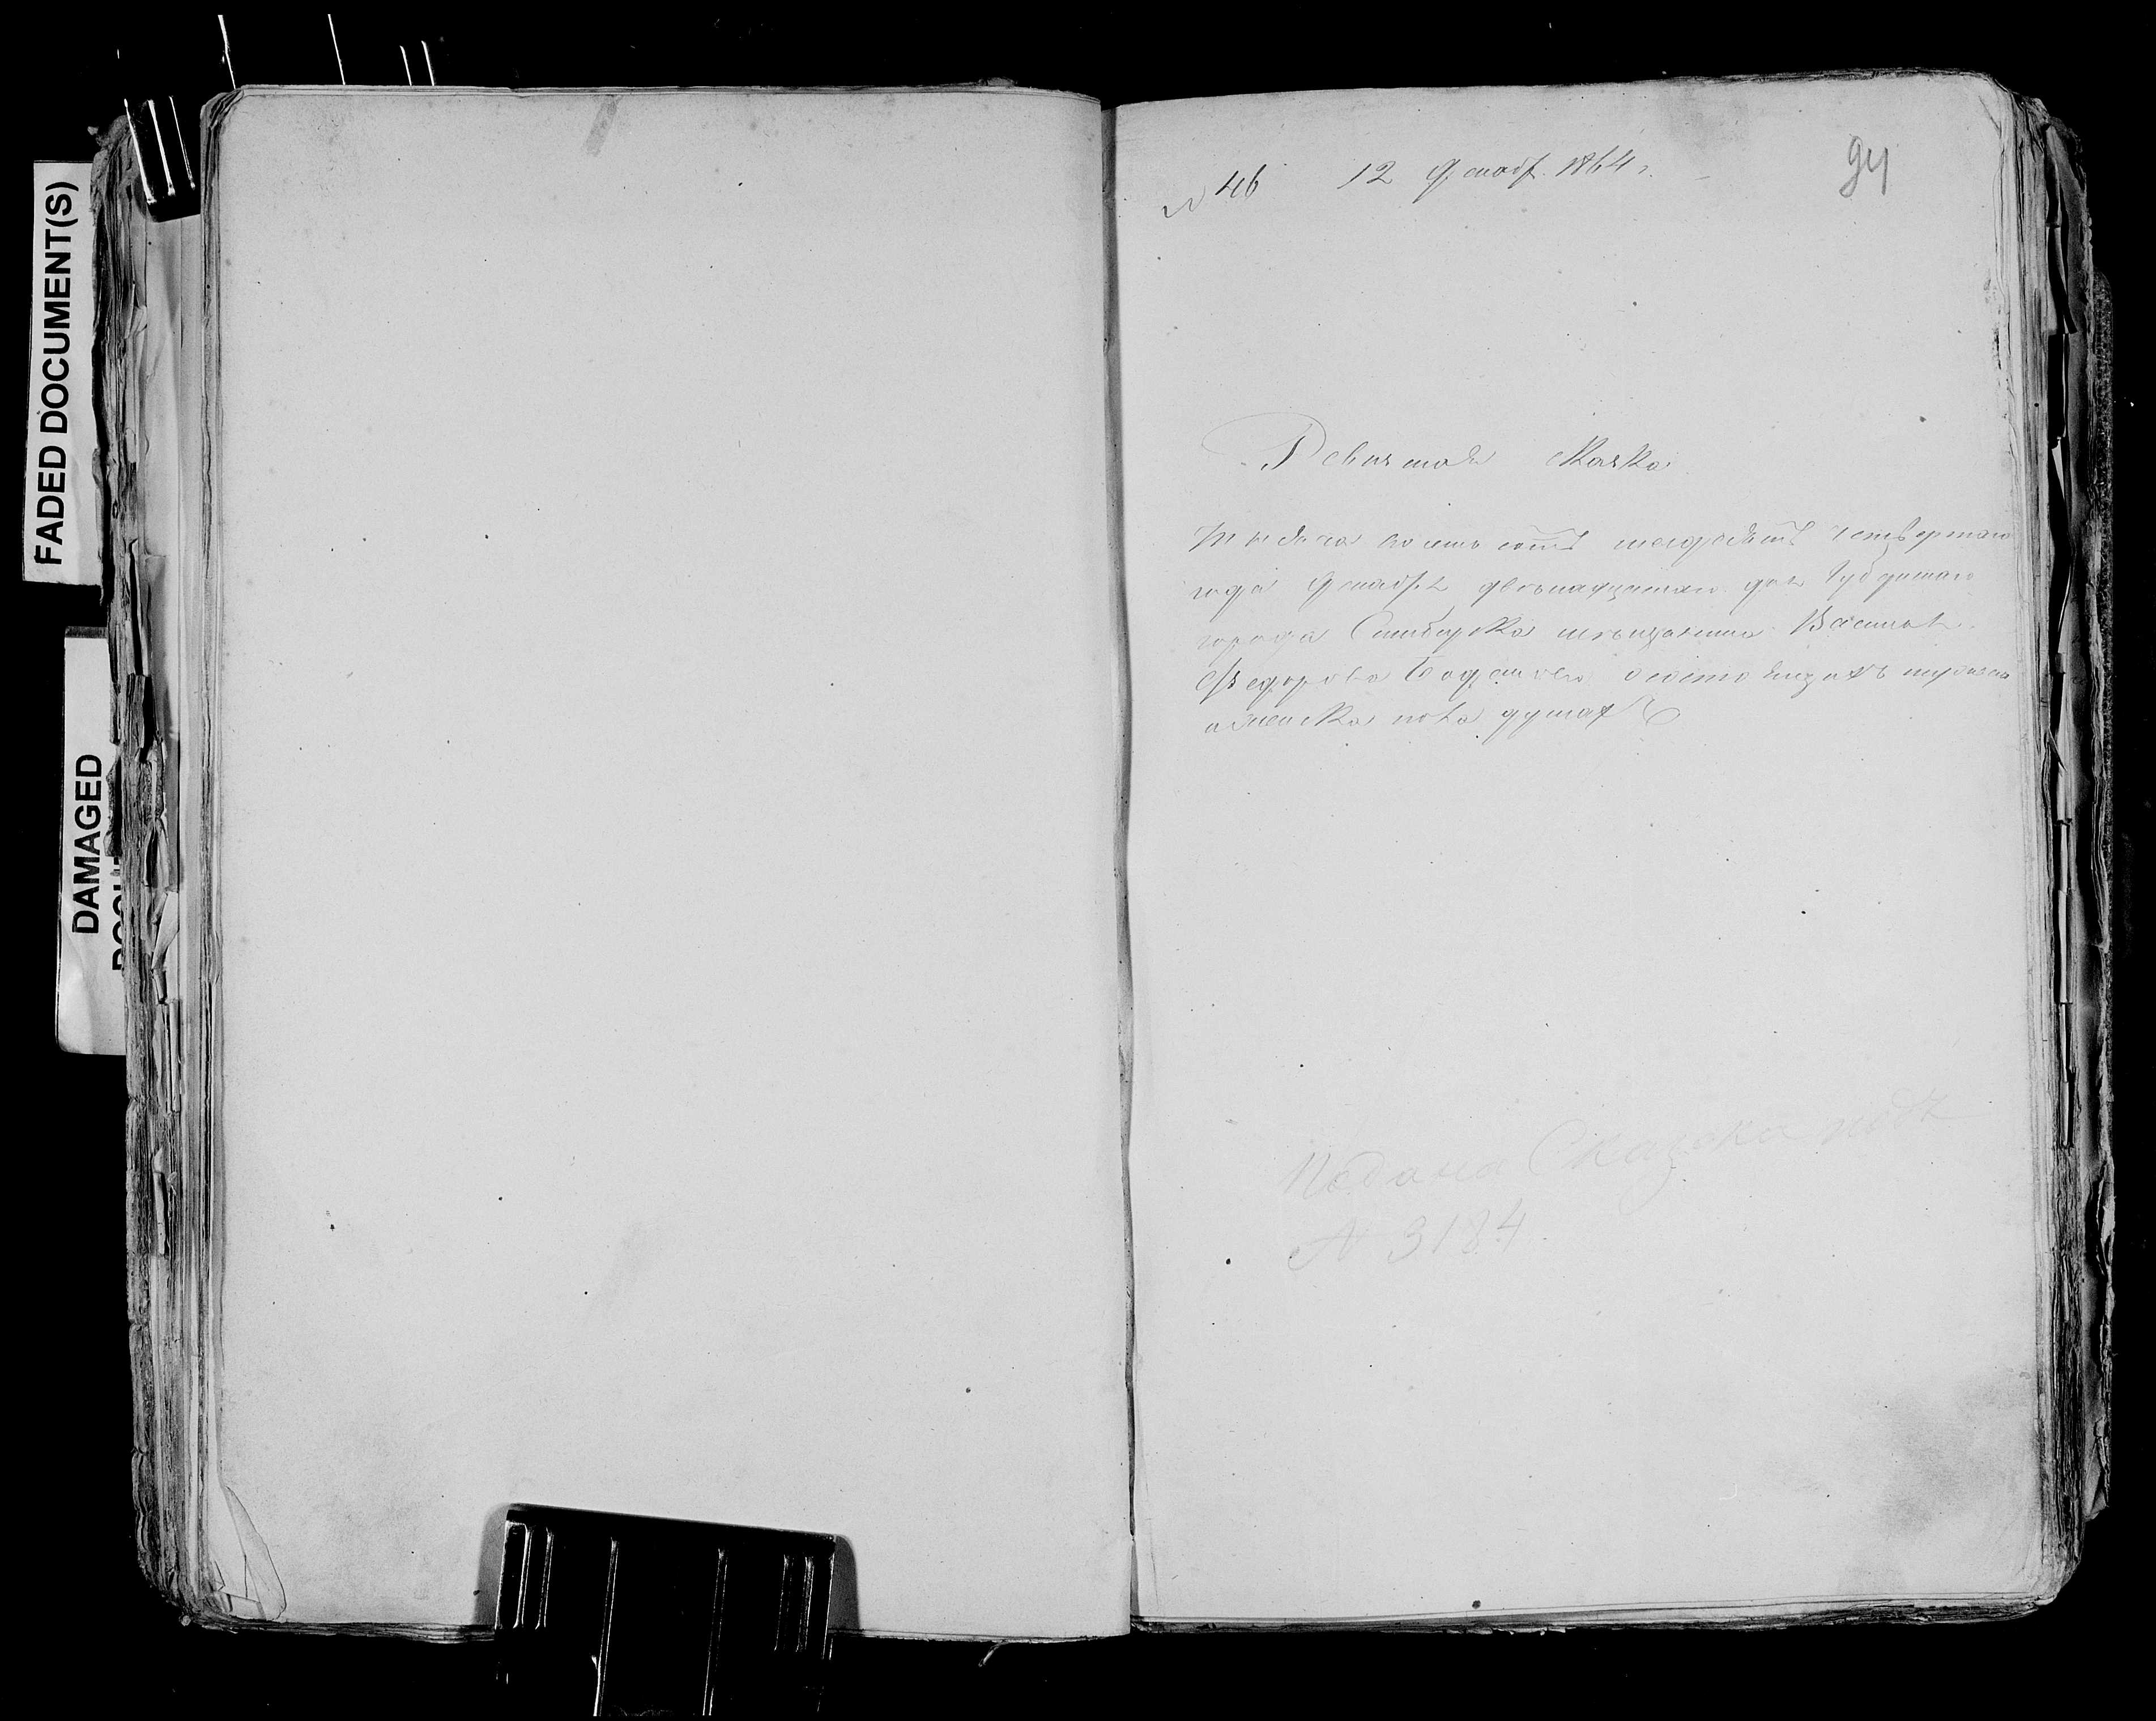 FADED DOCUMENT(S)
DAMAGED
№ 46 12 Декабр. 1864 г.
94
Ревизская сказка
Тысяча восемь сотъ шестьдесятъ четвертаго
года Декабря двенадцатаго дня Губернскаго
города Симбирска мещанина Василья
Федорова о состоящихъ мужеска
и женска пола душах
Подана Сказка подъ
№ 3184